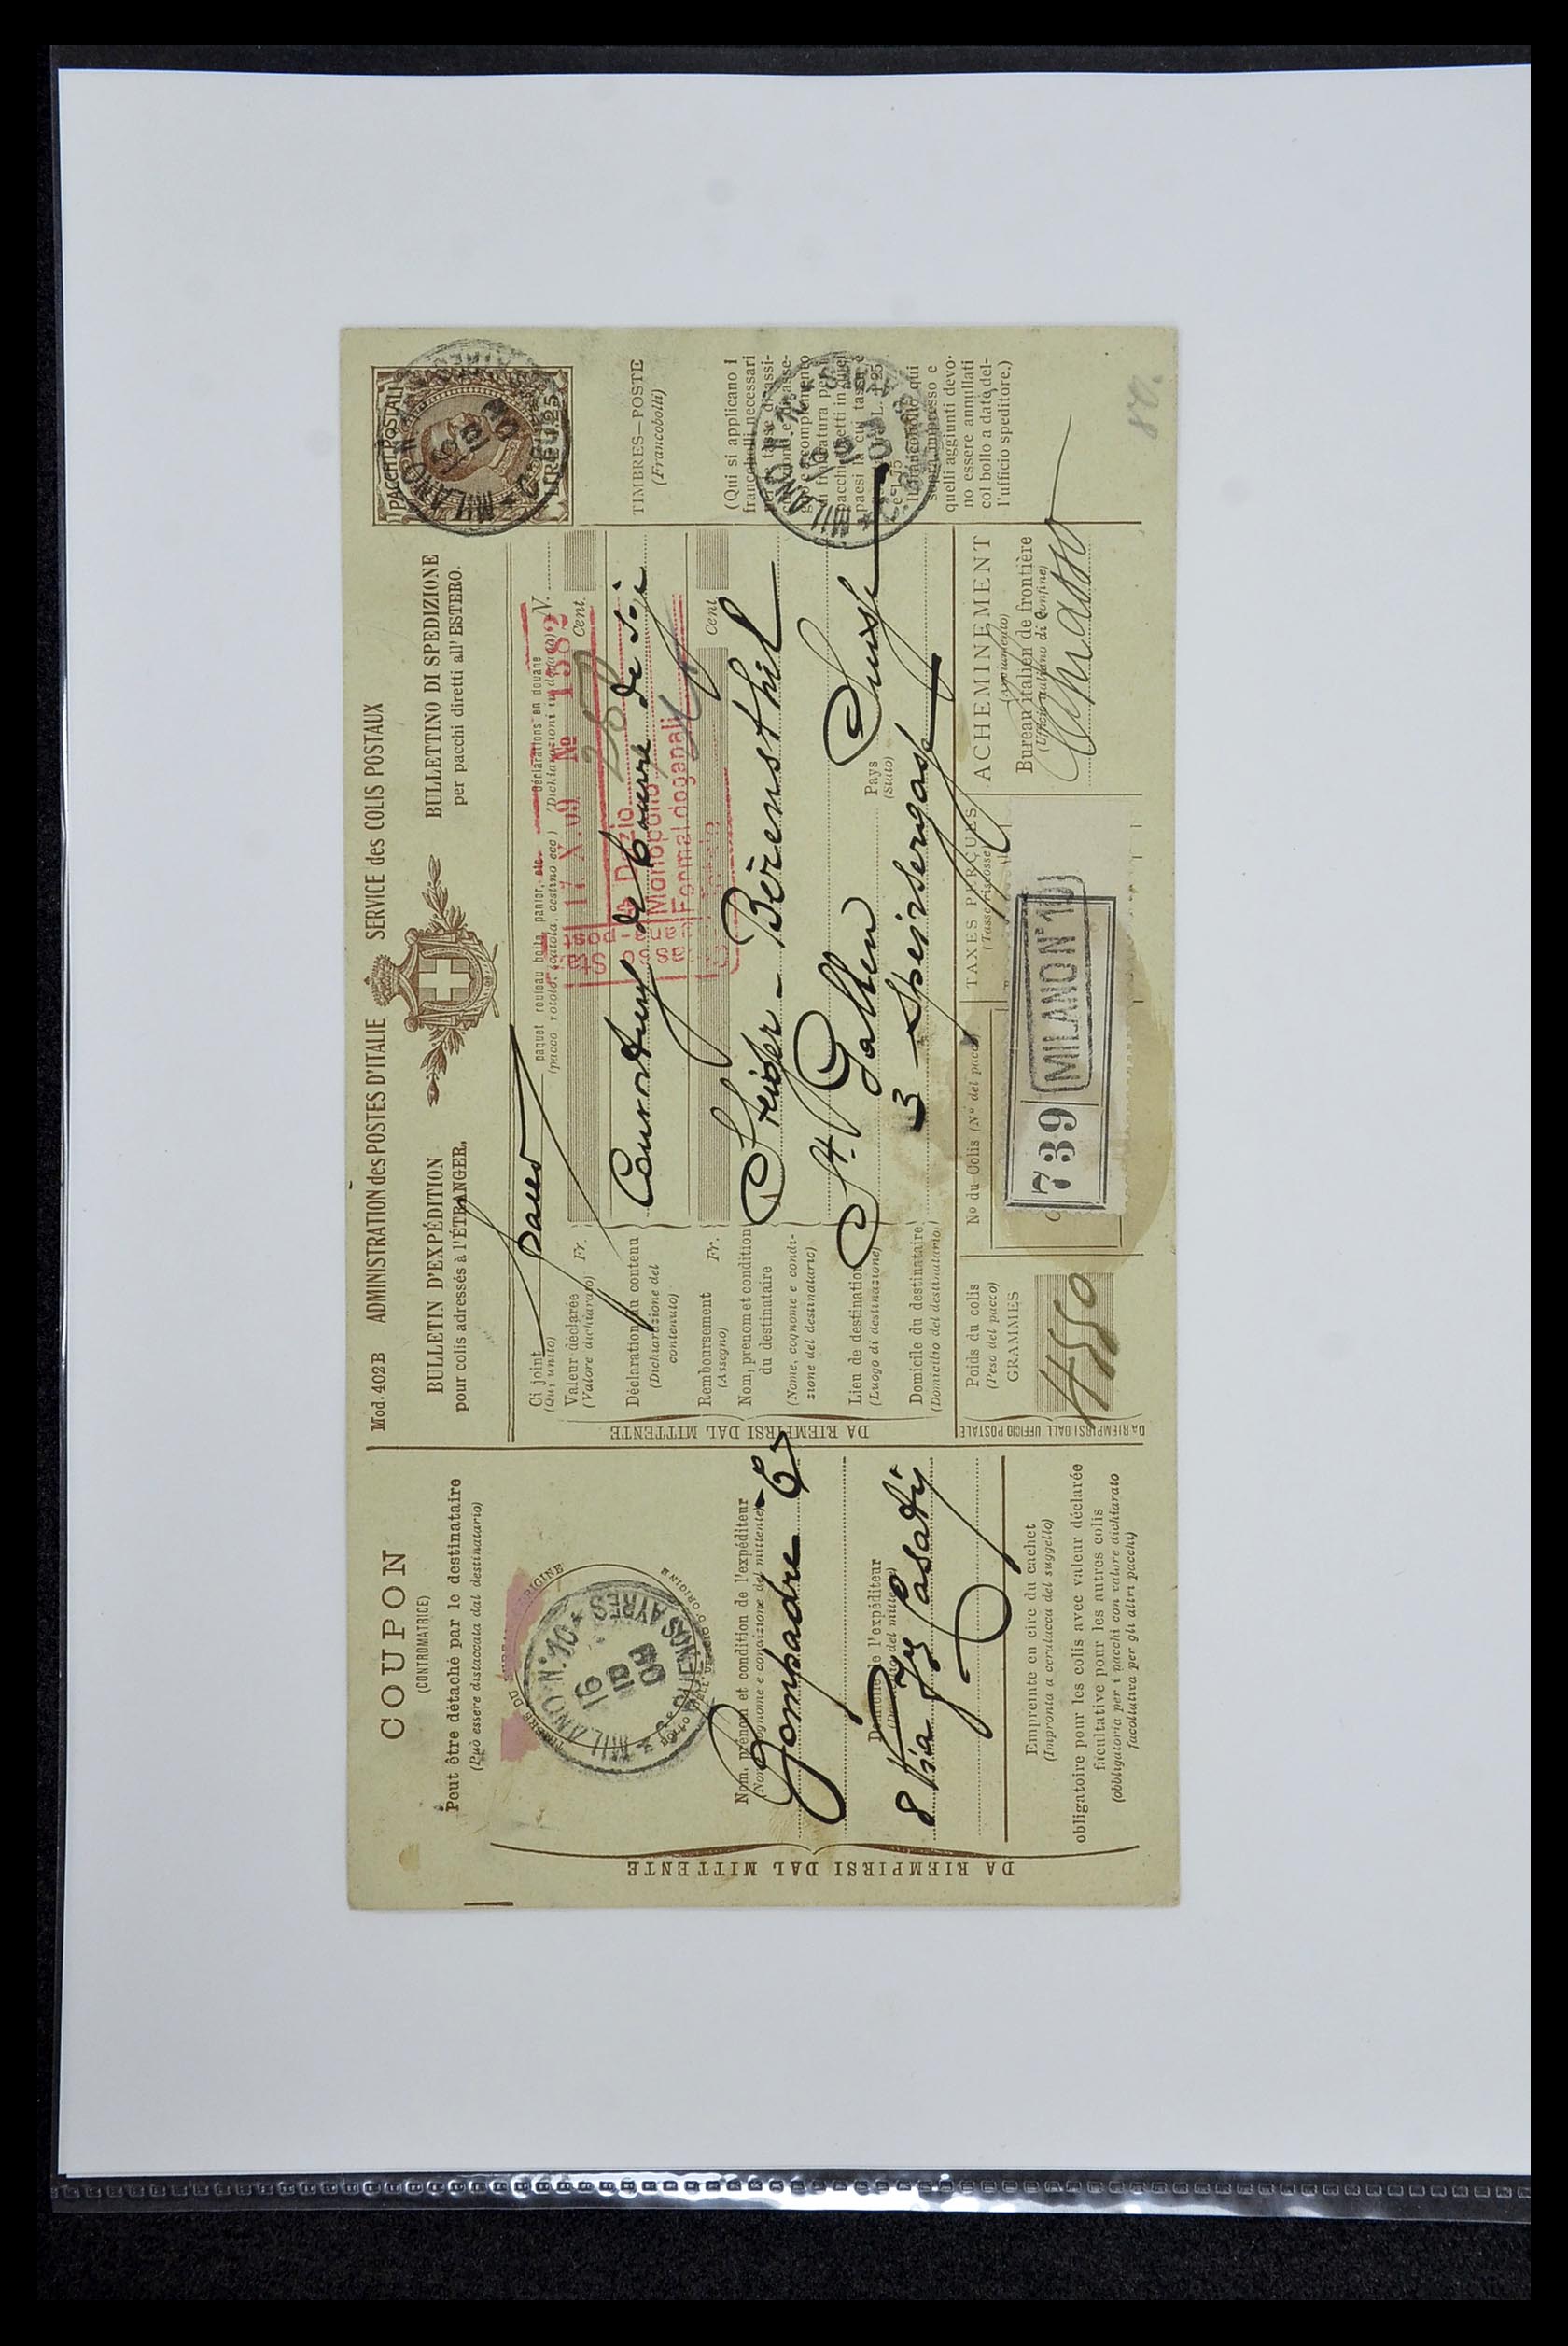 COUPON
(CONTROMATRICE)
Peut être détaché par le destinataire
(Può essere distaccata dal destinatario)
MILANO N.º 10
16
10
09
C.so BUENOS AYRES
Nom, prénom et condition de l'expéditeur
Pompadre & Co
8 Via Casati
Empreinte en cire du cachet
(Impronta a ceralacca del suggello)
obligatoire pour les colis avec valeur déclarée
facultative pour les autres colis
(obbligatoria per i pacchi con valore dichiarato
facoltativa per gli altri pacchi)
DA RIEMPIRSI DAL MITTENTE
Mod. 402B ADMINISTRATION des POSTES D'ITALIE SERVICE des COLIS POSTAUX
BULLETIN D'EXPÉDITION
pour colis adressés à l'ÉTRANGER.
BULLETTINO DI SPEDIZIONE
per pacchi diretti all'ESTERO.
PACCHI POSTALI
LIRE 1.25
MILANO N.
Ci joint
(Qui unito)
paquet rouleau boîte, panier, etc.
(pacco rotolo, scatola, cestino ecc)
Déclarations en douane
(Dichiarazioni in dogana)
N.
17 X. 09 No 1382
Valeur déclarée Fr. Cent.
(Valore dichiarato)
Dazio
Monopolio
Formal doganali
Déclaration du contenu
(Dichiarazione del
contenuto)
de bourre de
Remboursement Fr. Cent
(Assegno)
Nom, prenom et condition
du destinataire
(Nome, cognome e condi-
zione del destinatario)
Steiger-Bérensthil
Lieu de destination
(Luogo di destinazione)
St. Gallen
Pays
(Stato)
Suisse
Domicile du destinataire
(Domicilio del destinatario)
3 Speisergasse
DA RIEMPIRSI DAL MITTENTE
DA RIEMPIRSI DALL UFFICIO POSTALE
Poids du colis
(Peso del pacco)
GRAMMES
4550
No du Colis (Nº del pacco)
739 MILANO Nº 10
TAXES PERÇUES
(Tasse riscosse)
ACHEMINEMENT
(Avviamento)
Bureau italien de frontière
(Ufficio italiano di Confine)
Chiasso
TIMBRES-POSTE
(Francobolli)
(Qui si applicano i
francobolli necessari
quelli aggiunti devo-
no essere annullati
col bollo a data del-
l'ufficio speditore.)
MILANO N. 10
80.